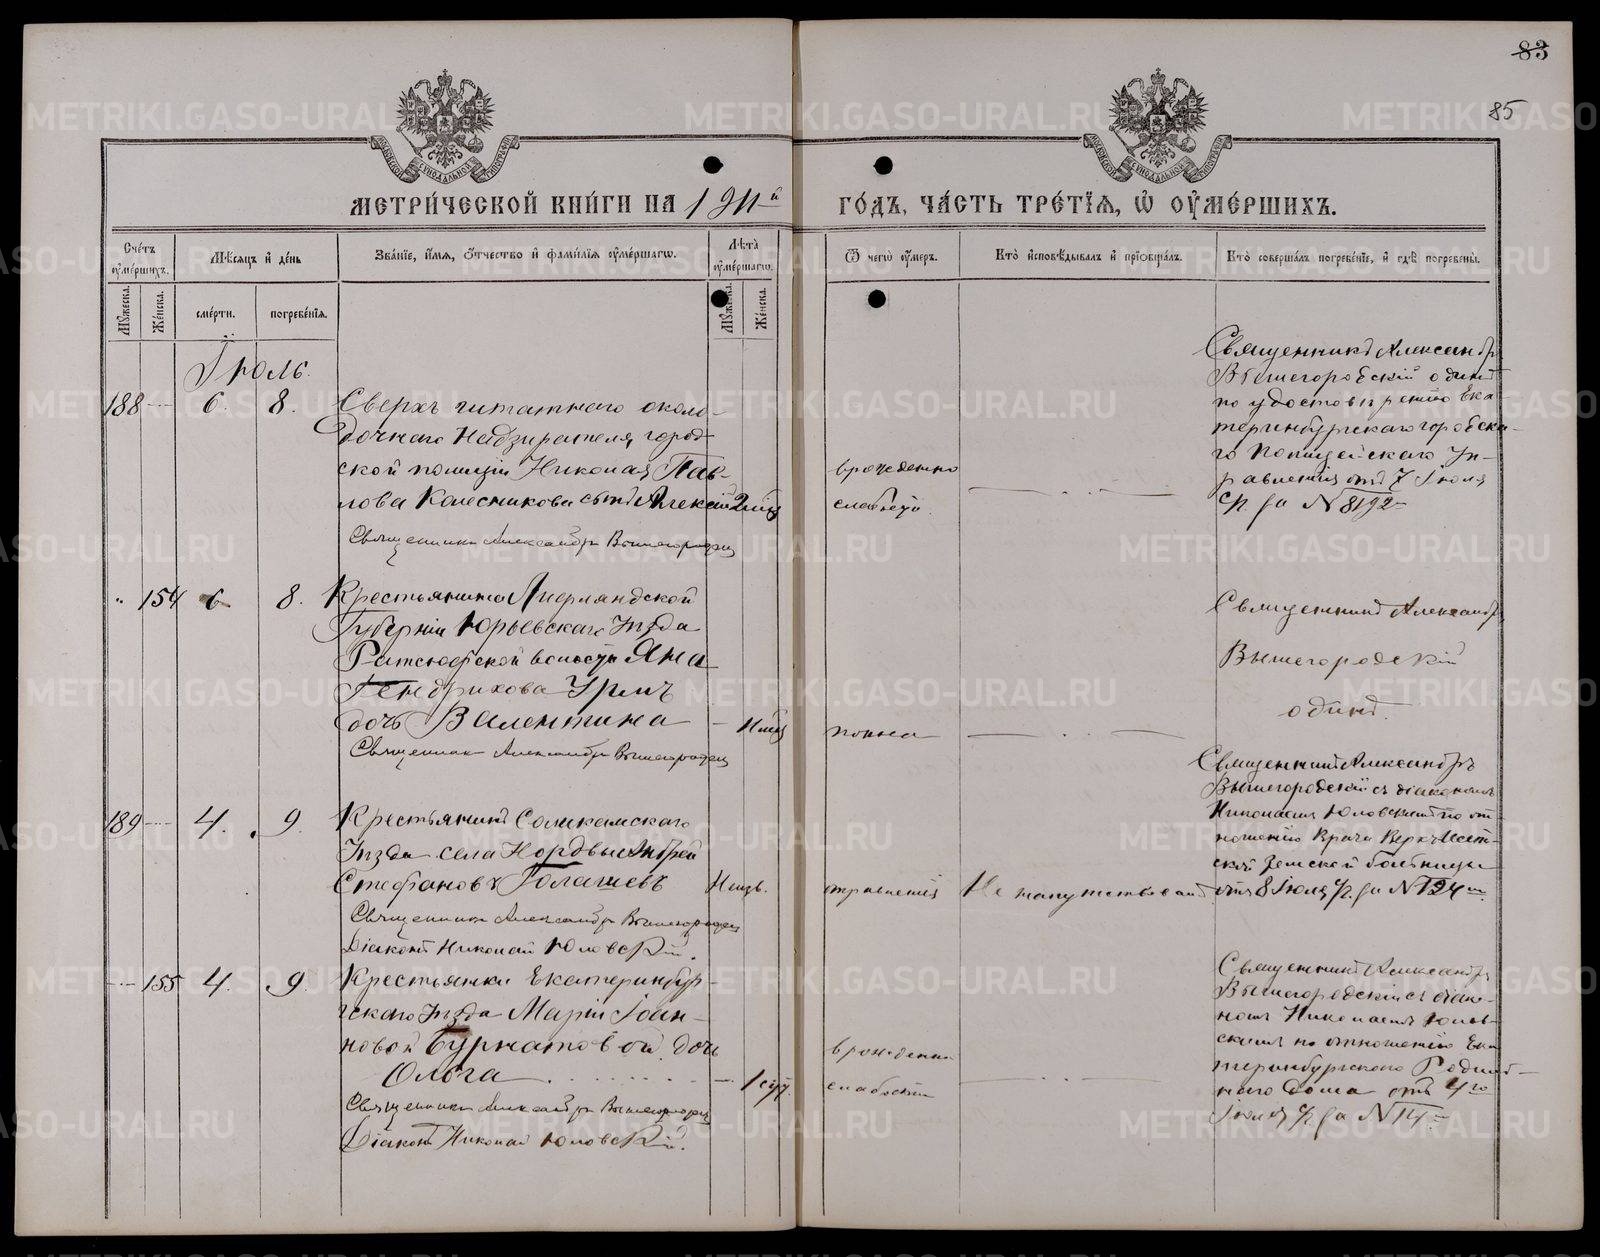 83
85
МЕТРИ́ЧЕСКОЙ КНИ́ГИ НА 1911-й ГО́ДЪ, ЧА́СТЬ ТРЕ́ТІѦ, Ѡ ОУМЕ́РШИХЪ.
Сче́тъ оуме́ршихъ.
Мѣ́сѧцъ и́ де́нь
Зва́ніе, и́мѧ, о́тчество и́ фами́ліѧ оуме́ршагѡ.
Лѣ́та оуме́ршагѡ.
Ѿ чегѡ̀ оу́меръ.
Кто̀ и́сповѣ́дывалъ и́ прїобща́лъ.
Кто̀ соверша́лъ погребе́ніе, и́ гдѣ̀ погребены̀.
Мꙋ́жеска.
Же́нска.
сме́рти.
погребе́нїѧ.
Мꙋ́жеска.
Же́нска.
Іюль.
188 6. 8.
Сверхъ штатнаго около-
дочнаго Надзирателя город-
ской полиціи Николая Пав-
лова Колесникова сынъ Алексій
Священникъ Александръ Вышегородскій
врожденно
слабости.
Священникъ Александръ
Вышегородскій одинъ
по удостовѣренію Ека-
теринбургскаго городска-
го Полицейскаго Уп-
равленія отъ 7 Іюля
с/г. за № 8192
" 154 6 8.
Крестьянина Лифляндской
Губерніи Юрьевскаго Уѣзда
волости Яна
Гендрихова Урмъ
дочь Валентина
Священник Александръ Вышегородскій
Священникъ Александръ
Вышегородскій
одинъ.
189 4. 9.
Крестьянинъ Соликамскаго
Уѣзда села Андрей
Стефановъ Голашевъ
Священникъ Александръ Вышегородскій
Діаконъ Николай Юловскій.
отравленія
Не напутствованъ
Священникъ Александръ
Вышегородскій съ діакономъ
Николаемъ Юловскимъ по от-
ношенію Врача Верхъ-Исет-
ской Земской больницы
отъ 8 Іюля с/г. за № 124
155 4. 9.
Крестьянки Екатеринбур-
гскаго Уѣзда Маріи Іоан-
новой Бурматовой дочь
Ольга
Священникъ Александръ Вышегородскій
Діаконъ Николай Юловскій.
врожденна
слабости
Священникъ Александръ
Вышегородскій съ діако-
номъ Николаемъ Юлов-
скимъ по отношенію Ека-
теринбургскаго Родиль-
наго Дома отъ 4го
Іюля с/г. за № 14
METRIKI.GASO-URAL.RU